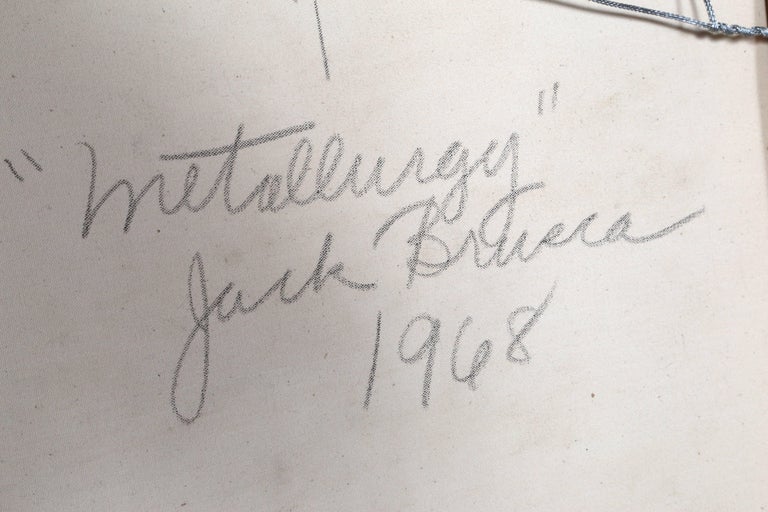 "Metallurgy"
Jack Brusca
1968